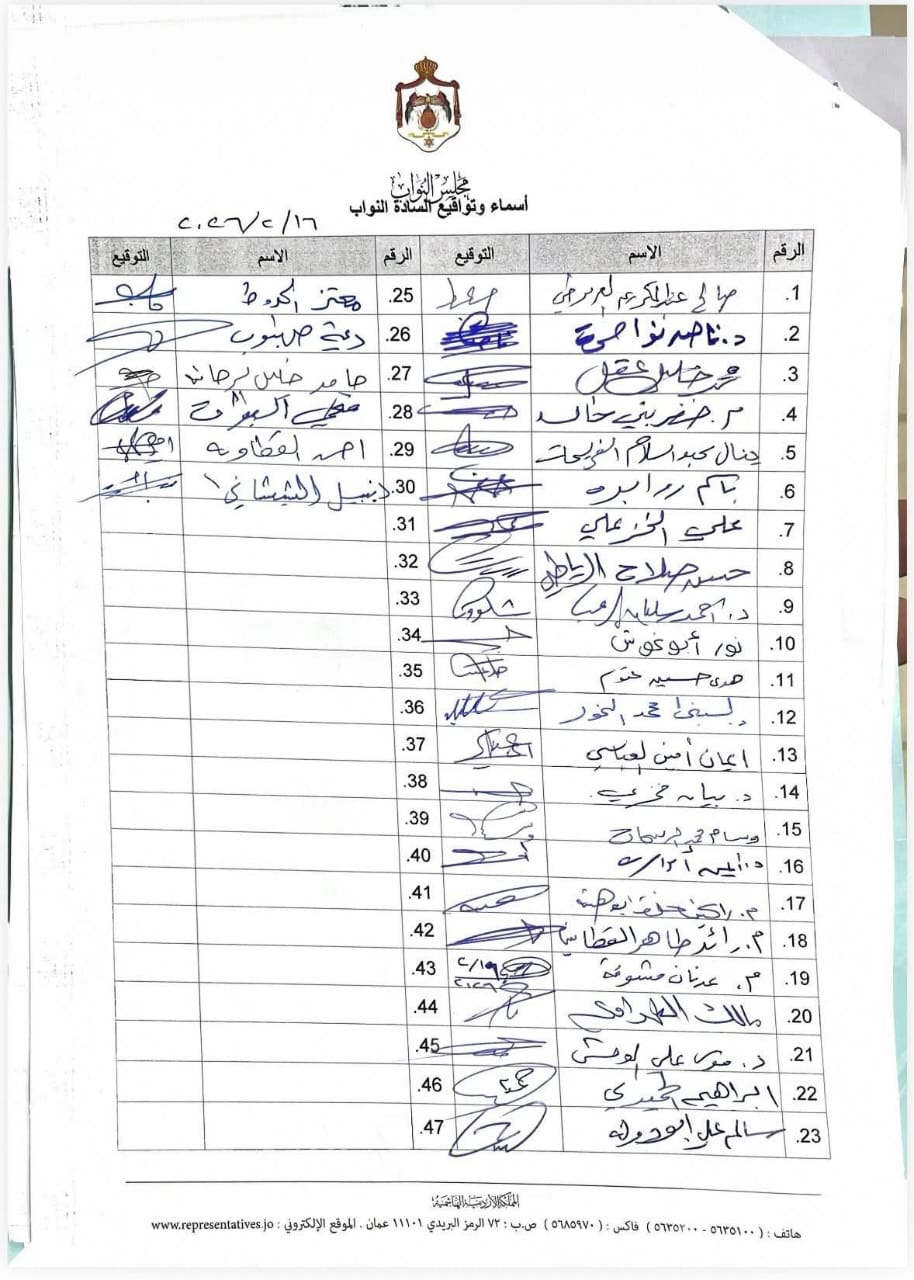 مجلس النواب
أسماء وتواقيع السادة النواب
٢٠٢٦/٢/١٦
الرقم الاسم التوقيع الرقم الاسم التوقيع
1. صالح عبدالكريم العرموطي 25. معتز الهروط
2. د. ناصر نواصرة 26. ديمة طهبوب
3. محمد خليل عقل 27. حامد خليل الرحامنة
4. م. خضر بني خالد 28.
5. ينال عبدالسلام الفريحات 29. احمد القطاونة
6. باسم روابده 30. نبيل الشيشاني
7. علي الخزعلي 31.
8. حسن صلاح الرياطي 32.
9. د. احمد سليمان الرقب 33.
10. نور أبو غوش 34.
11. هدى حسين عتوم 35.
12. لبنى محمد النمور 36.
13. ايمان أمين العباسي 37.
14. د. بيان فخري 38.
15. وسام محمد الربيحات 39.
16. د. ايمن أبو الرب 40.
17. م. راكين خلف ابو هنية 41.
18. م. رائد طاهر القطامين 42.
19. م. عدنان مشوقة ٢/١٩ ٢٠٢٦ 43.
20. مالك الطهراوي 44.
21. د. موسى علي الوحش 45.
22. ابراهيم الحميدي 46.
23. سالم علي ابو دولة 47.
المملكة الأردنية الهاشمية
هاتف : ( ٥٦٣٥١٠٠ - ٥٦٣٥٢٠٠ ) فاكس : ( ٥٦٨٥٩٧٠ ) ص.ب : ٧٢ الرمز البريدي ١١١٠١ عمان . الموقع الإلكتروني : www.representatives.jo